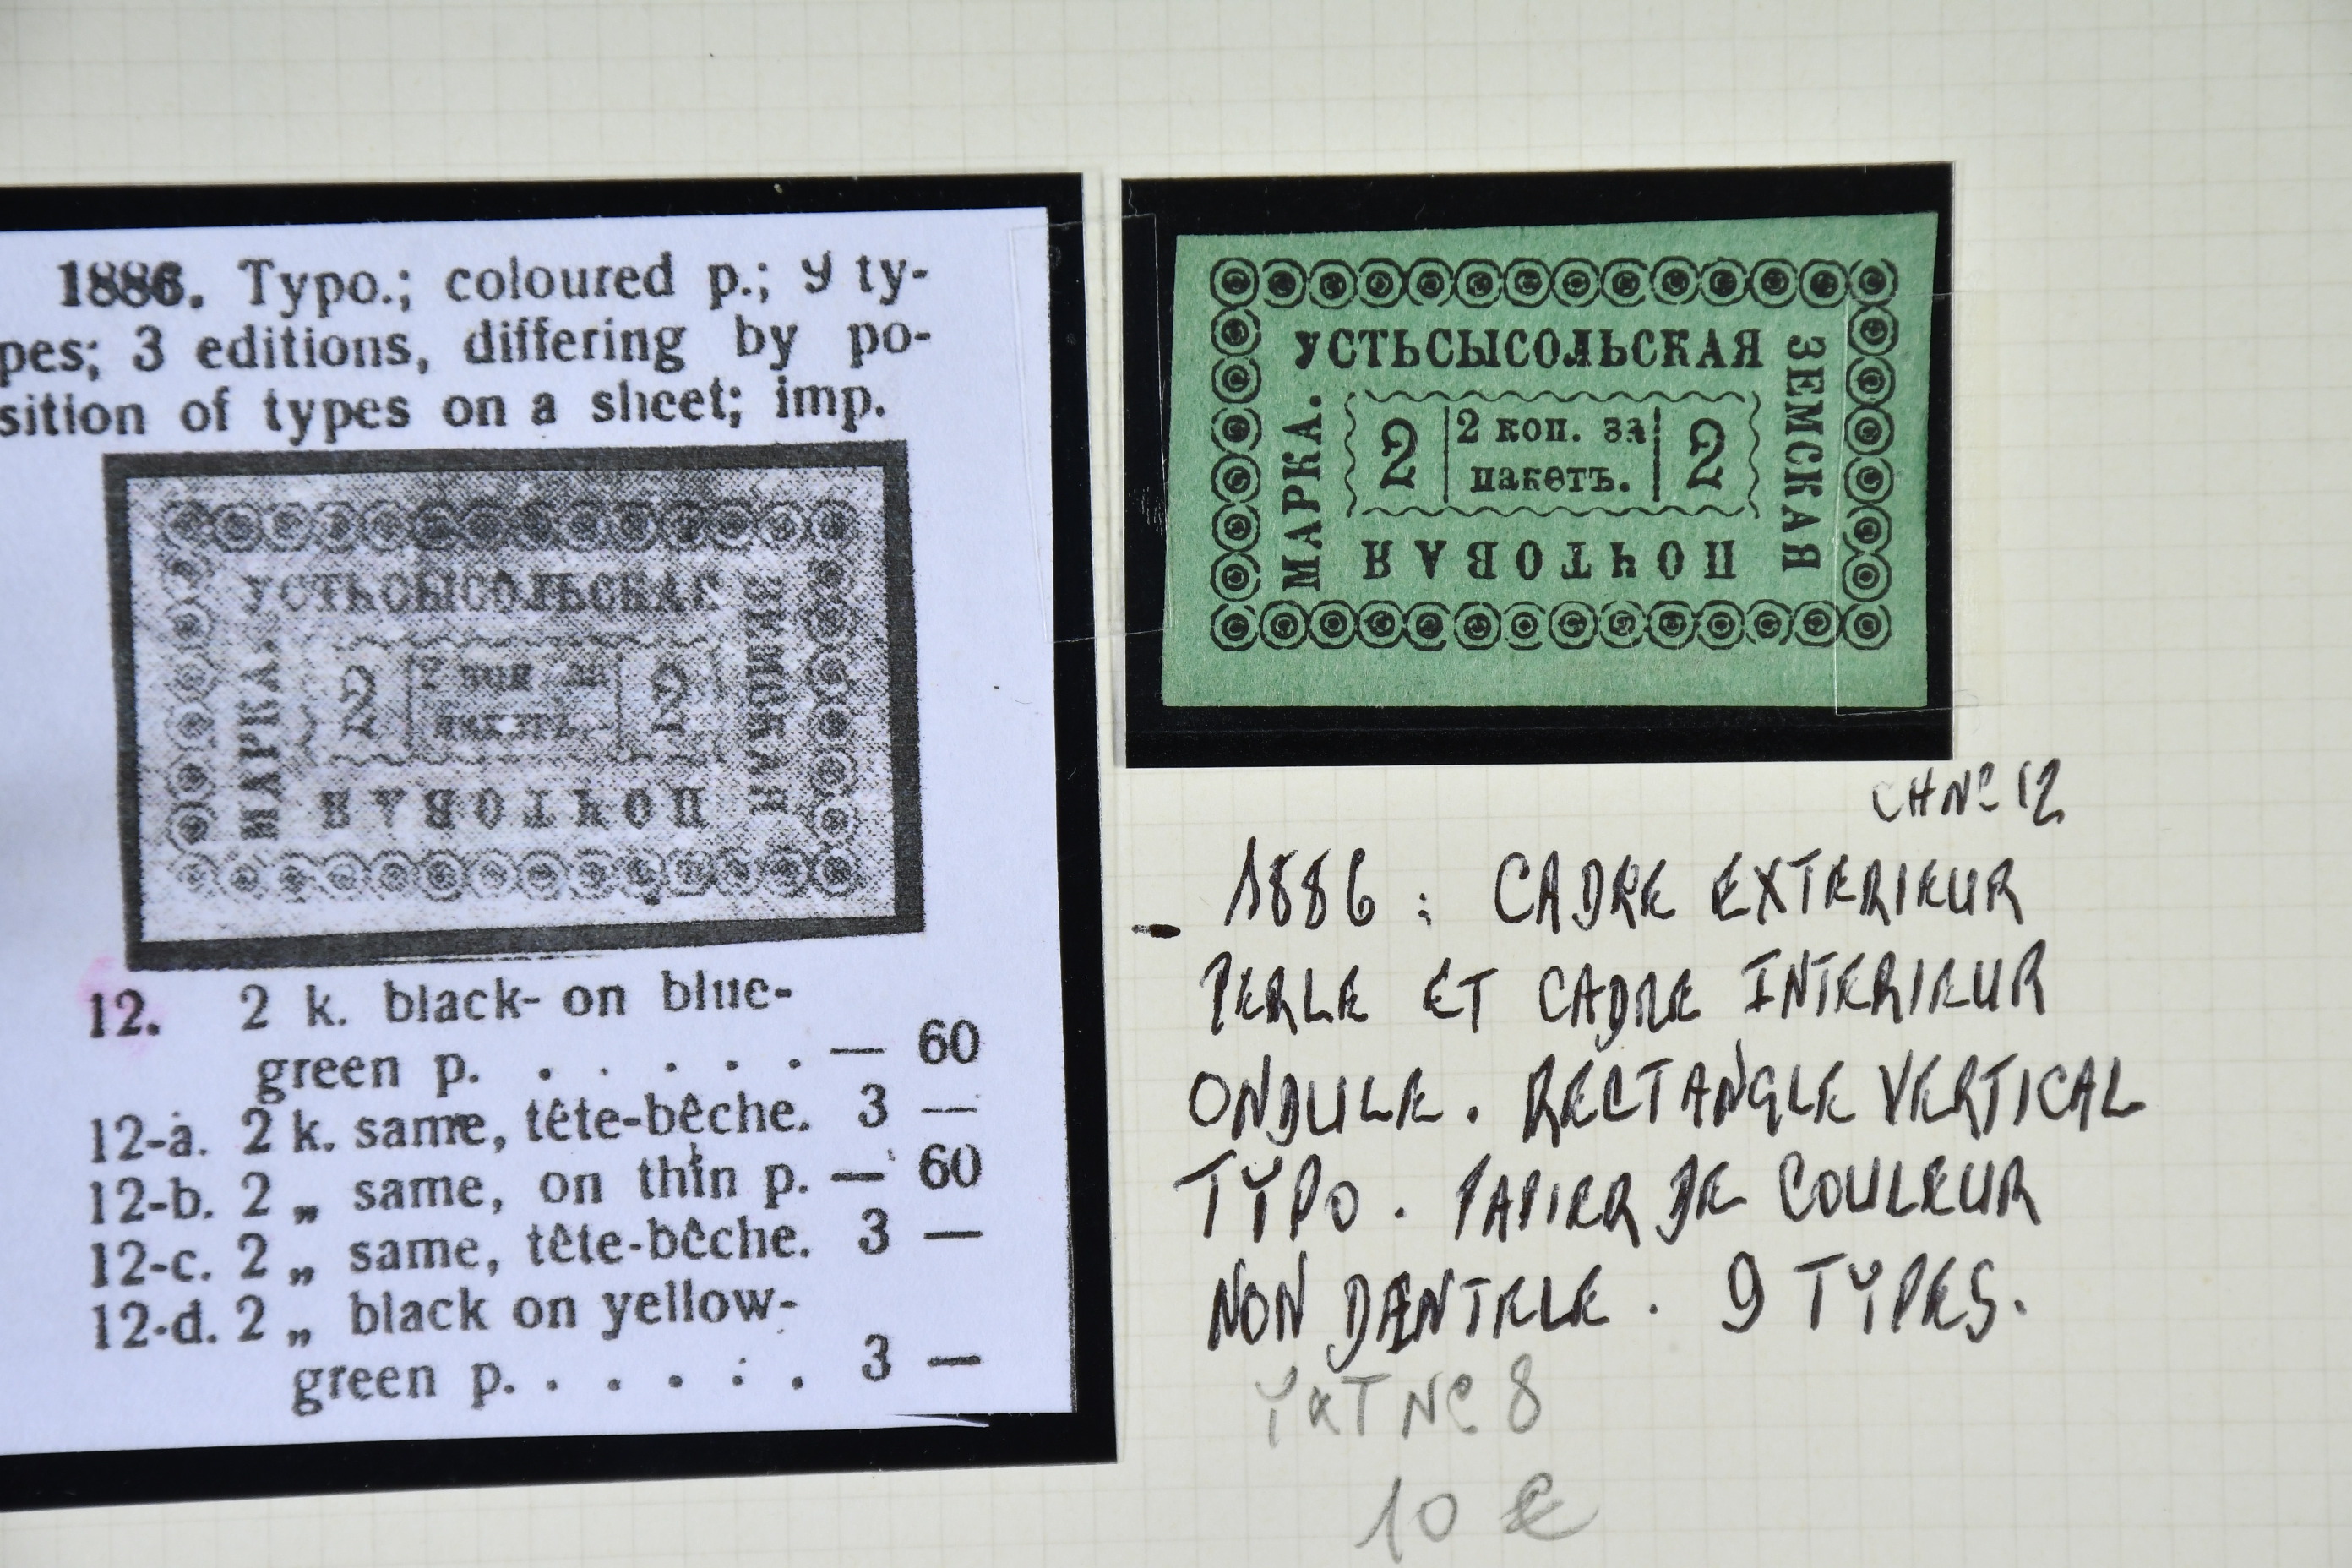 1886. Typo.; coloured p.; 9 ty-
pes; 3 editions, differing by po-
sition of types on a sheet; imp.
УСТЬСЫСОЛЬСКАЯ
ЗЕМСКАЯ
ПОЧТОВАЯ
МАРКА.
2
2 коп. за
пакетъ.
2
12. 2 k. black- on blue-
green p. . . . . . — 60
12-a. 2 k. same, tête-bêche. 3 —
12-b. 2 „ same, on thin p. — 60
12-c. 2 „ same, tête-bêche. 3 —
12-d. 2 „ black on yellow-
green p. . . . . . . 3 —
УСТЬСЫСОЛЬСКАЯ
ЗЕМСКАЯ
ПОЧТОВАЯ
МАРКА.
2
2 коп. за
пакетъ.
2
CH N° 12
- 1886 : CADRE EXTERIEUR
PERLE ET CADRE INTERIEUR
ONDULE. RECTANGLE VERTICAL
TYPO. PAPIER DE COULEUR
NON DENTELE. 9 TYPES.
YXT N° 8
10 €